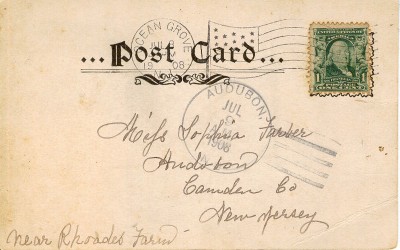 OCEAN GROVE
JUL
1908
...Post Card...
AUDUBON,
JUL
1908
1
ONE CENT
Miss Sophia Farber
Audubon
Camden Co
New Jersey
near Rhoades Farm